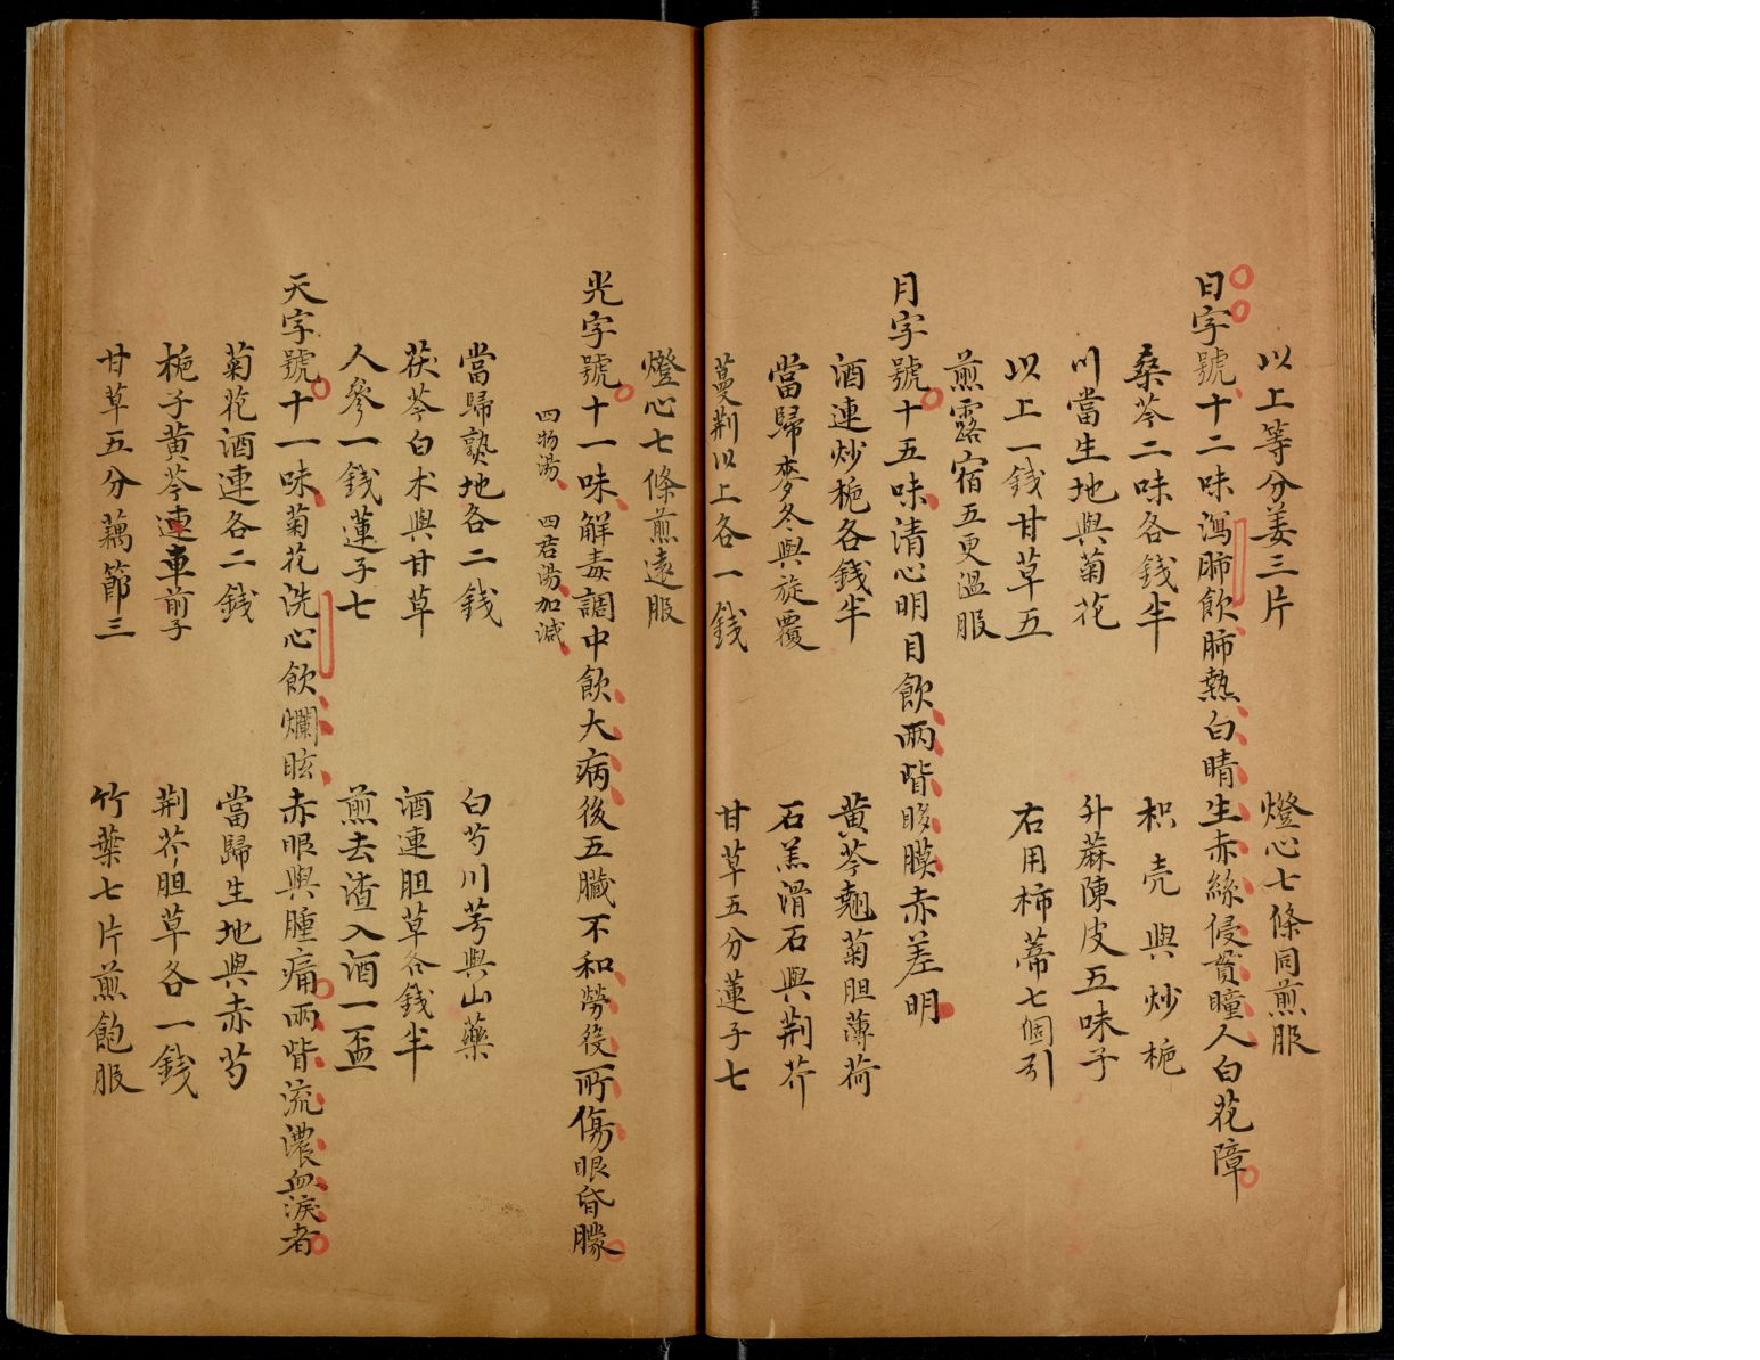 以上等分姜三片　燈心七條同煎服
日字號十二味瀉肺飲肺熱白睛生赤絲侵貫瞳人白花障
桑芩二味各錢半　枳壳與炒梔
川當生地與菊花　升蔴陳皮五味子
以上一錢甘草五　右用柿蒂七個引
煎露宿五更溫服
月字號十五味清心明目飲兩眥眵膜赤差明
酒連炒梔各錢半　黃芩翹菊胆薄荷
當歸麥冬與旋覆　石羔滑石與荆芥
蔓荆以上各一錢　甘草五分蓮子七
燈心七條煎遠服
光字號十一味解毒調中飲大病後五臟不和勞役所傷眼昏朦
四物湯　四君湯加減
當歸熟地各二錢　白芍川芎與山藥
茯苓白朮與甘草　酒連胆草各錢半
人參一錢蓮子七　煎去渣入酒一盃
天字號十一味菊花洗心飲爛眩赤眼與腫痛兩眥流濃血淚者
菊花酒連各二錢　當歸生地與赤芍
梔子黃芩連車前子　荆芥胆草各一錢
甘草五分藕節三　竹葉七片煎飽服